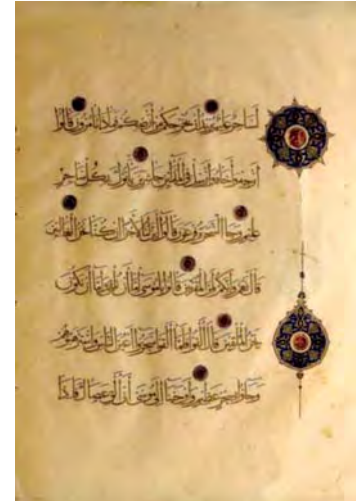 لساحر عليم يريد أن يخرجكم من أرضكم فماذا تأمرون قالوا
أرجه وأخاه وأرسل في المدائن حاشرين يأتوك بكل ساحر
عليم وجاء السحرة فرعون قالوا إن لنا لأجرا إن كنا نحن الغالبين
قال نعم وإنكم لمن المقربين قالوا يموسى إما أن تلقي وإما أن نكون
نحن الملقين قال ألقوا فلما ألقوا سحروا أعين الناس واسترهبوهم
وجاؤا بسحر عظيم وأوحينا إلى موسى أن ألق عصاك فإذا